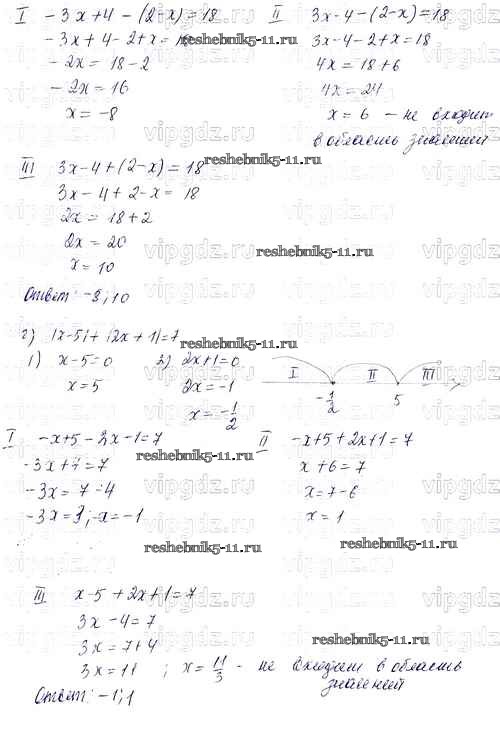 I   -3x+4-(2-x)=18
-3x+4-2+x=18
-2x=18-2
-2x=16
x=-8
II   3x-4-(2-x)=18
3x-4-2+x=18
4x=18+6
4x=24
x=6 - не входит
в область значений
III   3x-4+(2-x)=18
3x-4+2-x=18
2x=18+2
2x=20
x=10
Ответ: -8; 10
г) |x-5|+|2x+1|=7
1) x-5=0   2) 2x+1=0
x=5   2x=-1
x=-1/2
I   II   III
-1/2   5
I   -x+5-2x-1=7
-3x+4=7
-3x=7-4
-3x=3; x=-1
II   -x+5+2x+1=7
x+6=7
x=7-6
x=1
III   x-5+2x+1=7
3x-4=7
3x=7+4
3x=11   ; x=11/3 - не входит в область
значений
Ответ: -1; 1
vipgdz.ru
reshebnik5-11.ru